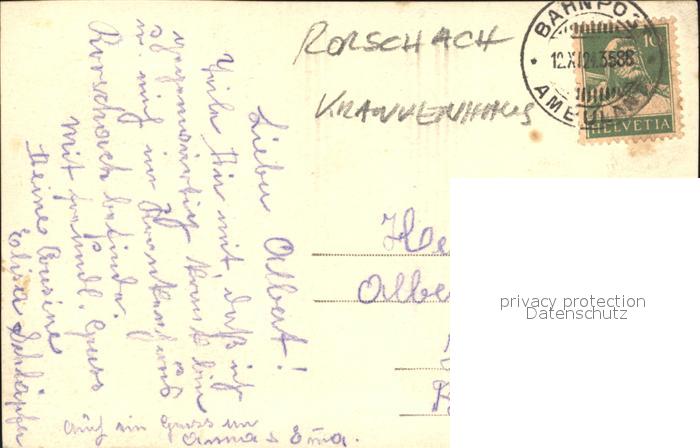 RORSCHACH
KRANKENHAUS
BAHNPOST
12.XI.24.3588
AMBULANT
10
HELVETIA
Lieber Albert!
Teile Dir mit, daß ich
gegenwärtig krank bin
u. mich im Krankenhaus
Rorschach befinde.
Mit freundl. Gruss
Deine Cousine
Elisa
Auch ein Gruss
Anna & Emma.
He
Albe
privacy protection
Datenschutz